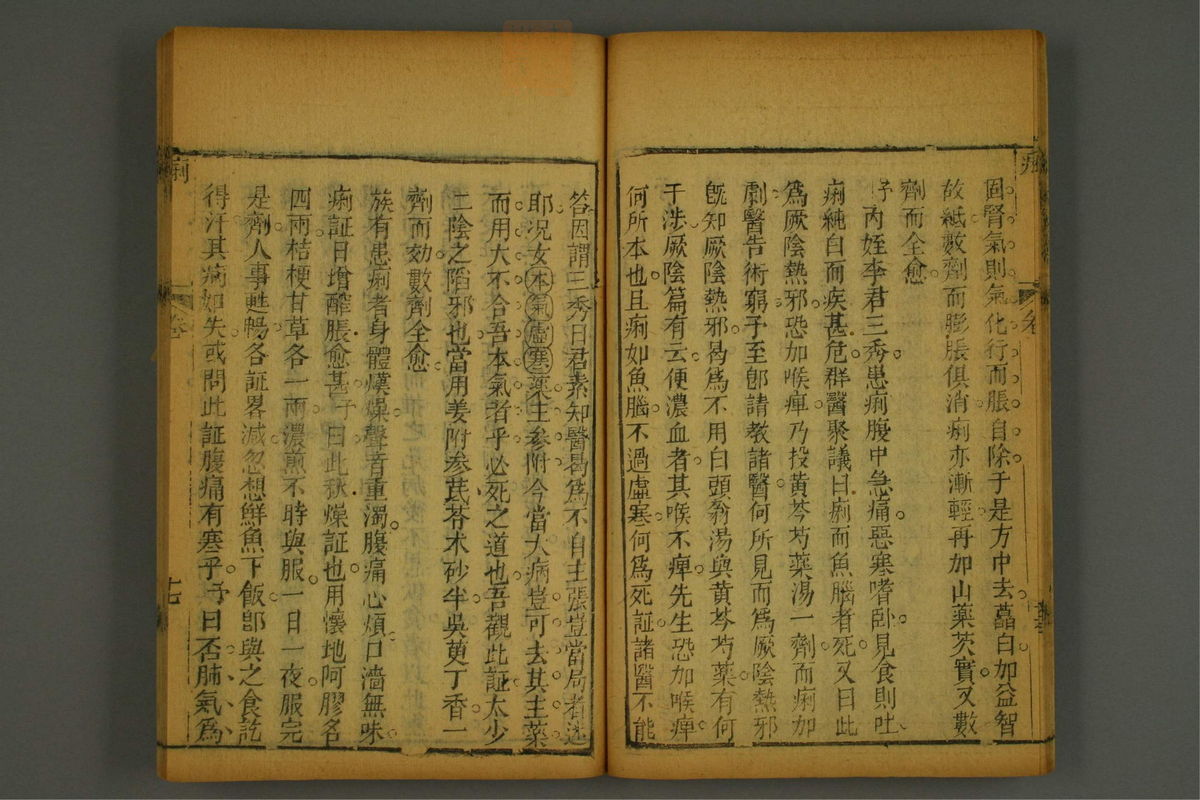 固腎氣則氣化行而脹自除于是方中去藠白加益智
故紙數劑而膨脹俱消痢亦漸輕再加山藥芡實又數
劑而全愈
予內姪李君三秀患痢腹中急痛惡寒嗜臥見食則吐
痢純白而疾甚危群醫聚議曰痢而魚腦者死又曰此
為厥陰熱邪恐加喉痺乃投黃芩芍藥湯一劑而痢加
劇醫告術窮予至即請教諸醫何所見而為厥陰熱邪
既知厥陰熱邪曷為不用白頭翁湯與黃芩芍藥有何
干涉厥陰篇有云便濃血者其喉不痺先生恐加喉痺
何所本也且痢如魚腦不過虛寒何為死証諸醫不能
答因謂三秀曰君素知醫曷為不自主張豈當局者迷
耶況女本氣虛寒藥主參附今當大病豈可去其主藥
而用大不合吾本氣者乎必死之道也吾觀此証太少
二陰之陷邪也當用姜附參芪苓朮砂半吳萸丁香一
劑而効數劑全愈
族有患痢者身體熯燥聲音重濁腹痛心煩口濇無味
痢証日增醡脹愈甚予曰此秋燥証也用懷地阿膠各
四兩桔梗甘草各一兩濃煎不時與服一日一夜服完
是劑人事甦暢各証畧減忽想鮮魚下飯即與之食訖
得汗其痢如失或問此証腹痛有寒乎予曰否肺氣為
痢
卷
十七